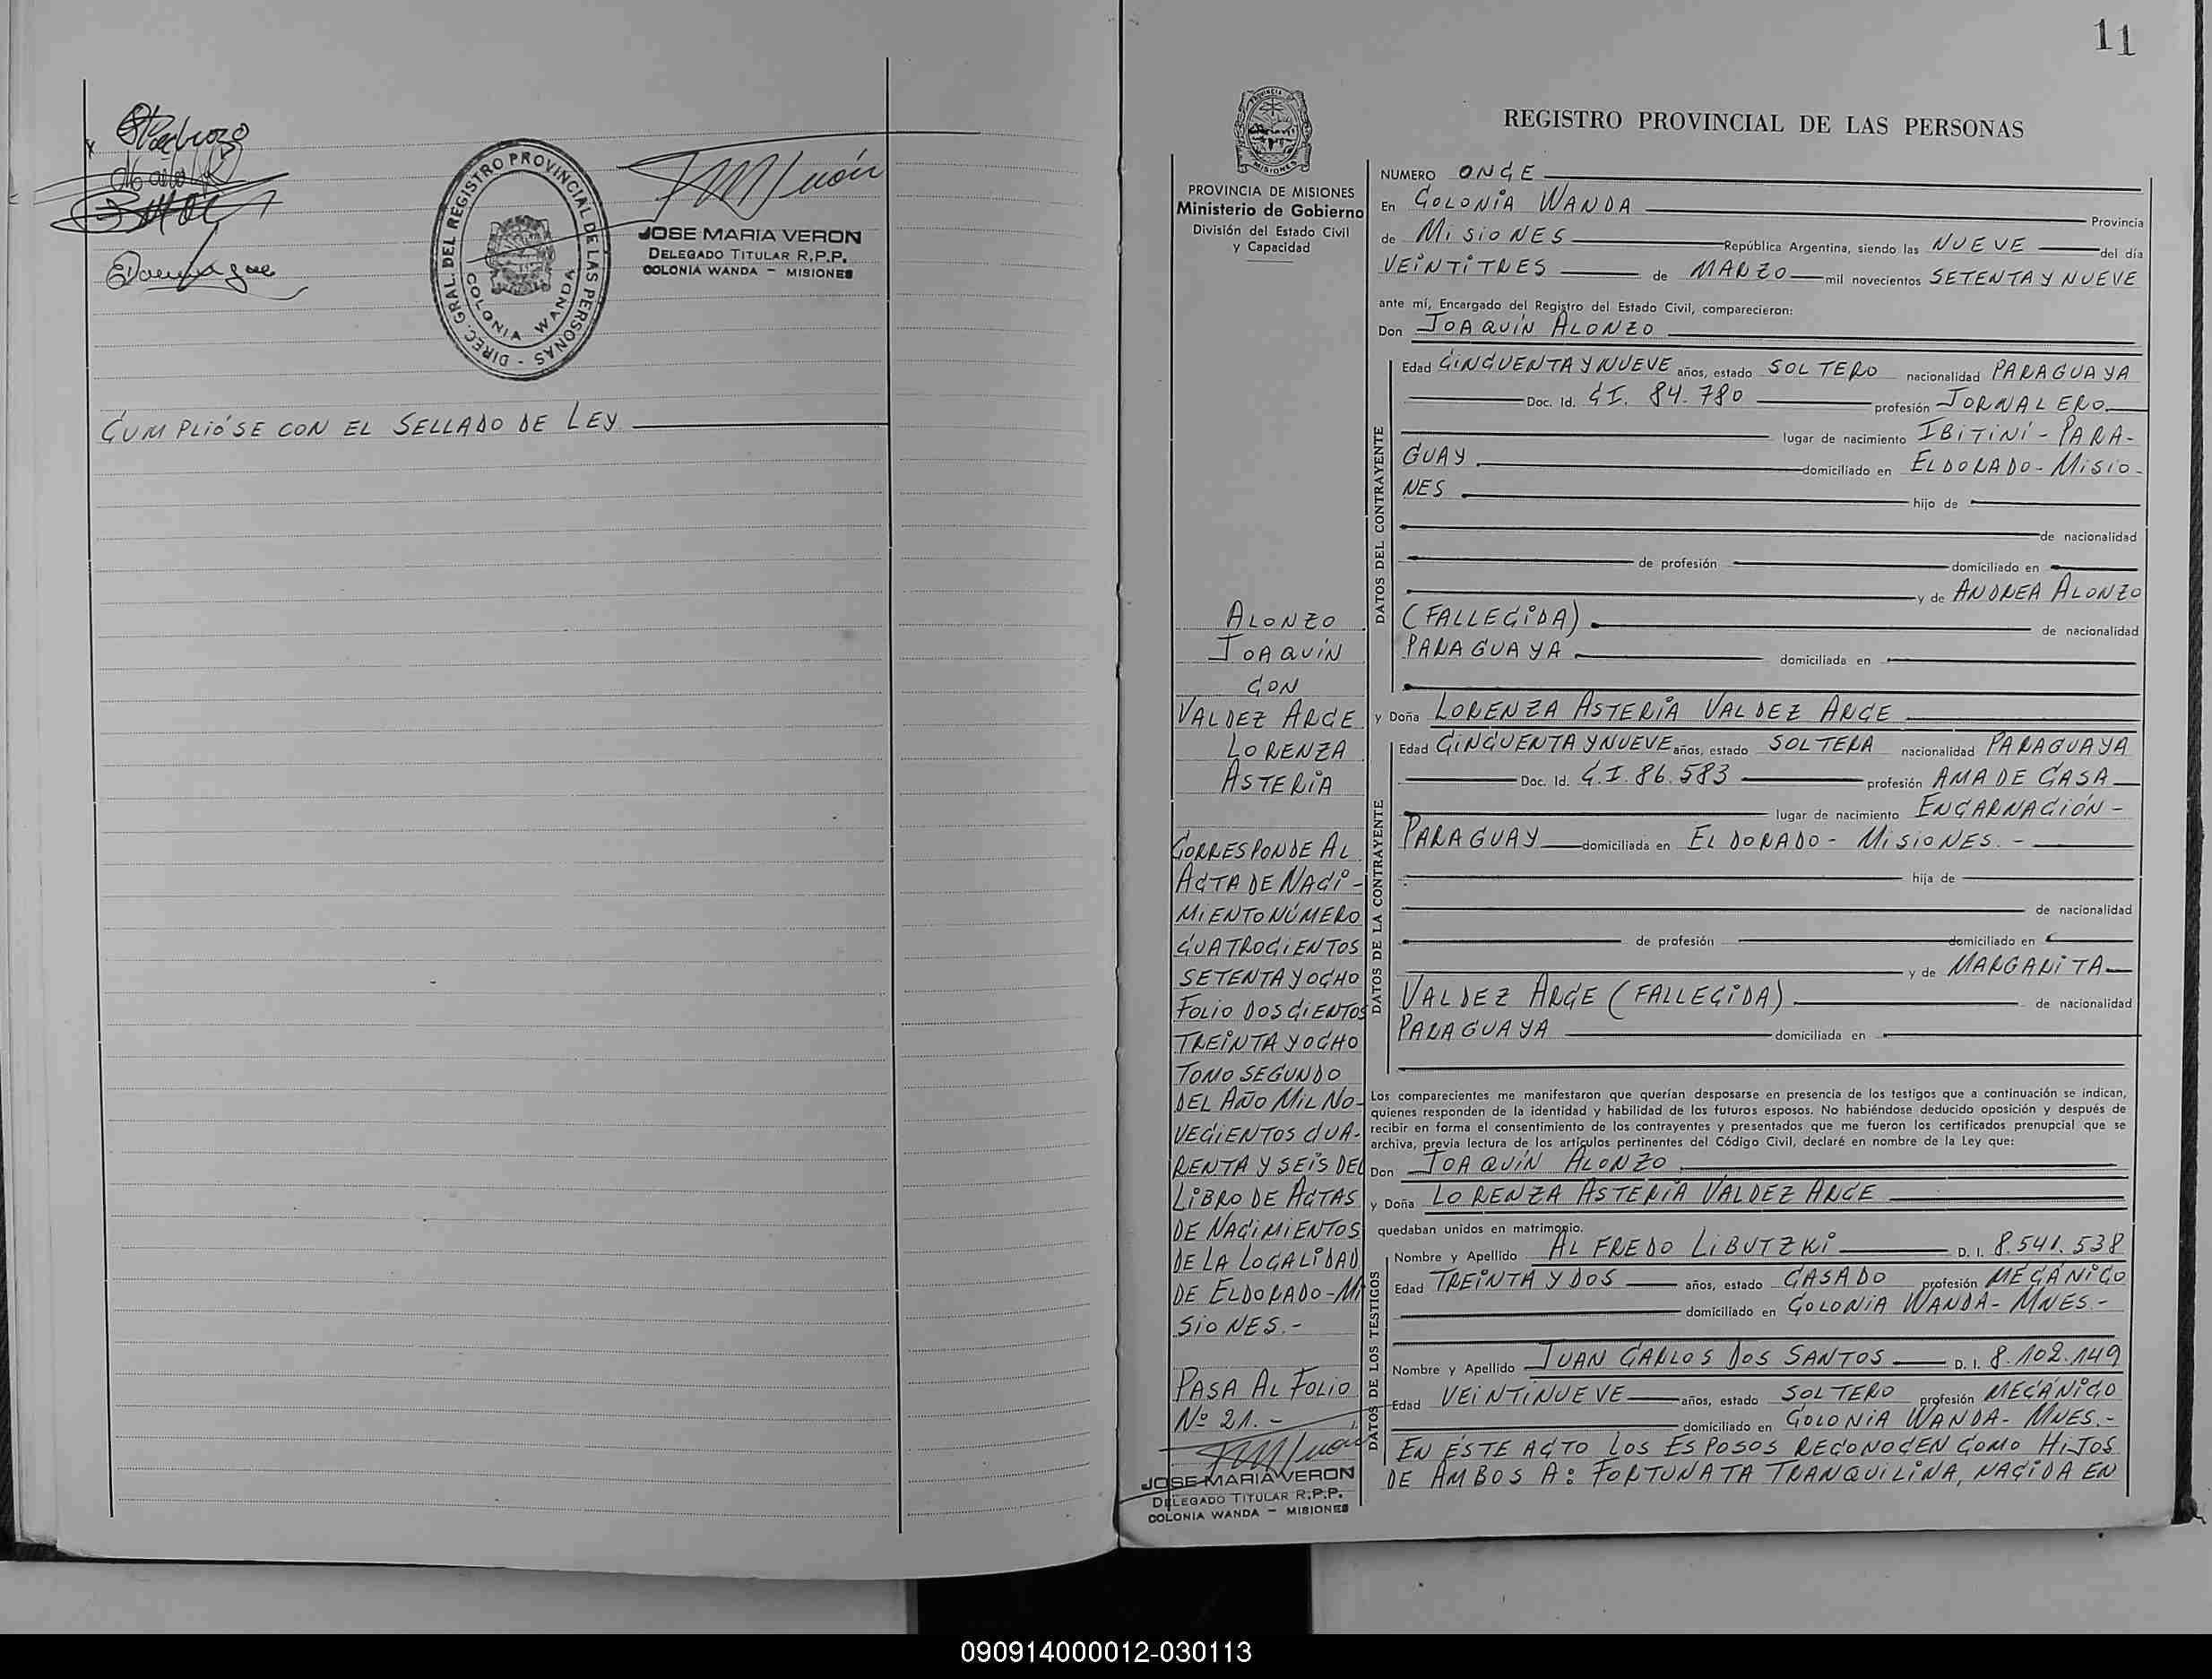 DIREC. GRAL. DEL REGISTRO PROVINCIAL DE LAS PERSONAS -
COLONIA WANDA
JOSE MARIA VERON
DELEGADO TITULAR R.P.P.
COLONIA WANDA - MISIONES
CUMPLIÓSE CON EL SELLADO DE LEY.
11
PROVINCIA DE
MISIONES
PROVINCIA DE MISIONES
Ministerio de Gobierno
División del Estado Civil
y Capacidad
ALONZO
JOAQUÍN
CON
VALDEZ ARCE
LORENZA
ASTERIA
CORRESPONDE AL
ACTA DE NACI-
MIENTO NÚMERO
CUATROCIENTOS
SETENTA Y OCHO
FOLIO DOSCIENTOS
TREINTA Y OCHO
TOMO SEGUNDO
DEL AÑO MIL NO-
VECIENTOS CUA-
RENTA Y SEIS DEL
LIBRO DE ACTAS
DE NACIMIENTOS
DE LA LOCALIDAD
DE ELDORADO-MI
SIONES.-
PASA AL FOLIO
Nº 21.-
JOSE MARIA VERON
DELEGADO TITULAR R.P.P.
COLONIA WANDA - MISIONES
REGISTRO PROVINCIAL DE LAS PERSONAS
NUMERO ONCE
En COLONIA WANDA Provincia
de MISIONES República Argentina, siendo las NUEVE del día
VEINTITRES de MARZO mil novecientos SETENTA Y NUEVE
ante mí, Encargado del Registro del Estado Civil, comparecieron:
Don JOAQUÍN ALONZO
DATOS DEL CONTRAYENTE
Edad CINCUENTA Y NUEVE años, estado SOLTERO nacionalidad PARAGUAYA
Doc. Id. C.I. 84.780 profesión JORNALERO.
lugar de nacimiento IBITINÍ - PARA-
GUAY. domiciliado en ELDORADO - MISIO-
NES. hijo de
de nacionalidad
de profesión domiciliado en
y de ANDREA ALONZO
(FALLECIDA). de nacionalidad
PARAGUAYA. domiciliada en
y Doña LORENZA ASTERIA VALDEZ ARCE
DATOS DE LA CONTRAYENTE
Edad CINCUENTA Y NUEVE años, estado SOLTERA nacionalidad PARAGUAYA
Doc. Id. C.I. 86.583 profesión AMA DE CASA
lugar de nacimiento ENCARNACIÓN -
PARAGUAY domiciliada en ELDORADO - MISIONES. -
hija de
de nacionalidad
de profesión domiciliado en
y de MARGARITA
VALDEZ ARCE (FALLECIDA). de nacionalidad
PARAGUAYA domiciliada en
Los comparecientes me manifestaron que querían desposarse en presencia de los testigos que a continuación se indican,
quienes responden de la identidad y habilidad de los futuros esposos. No habiéndose deducido oposición y después de
recibir en forma el consentimiento de los contrayentes y presentados que me fueron los certificados prenupcial que se
archiva, previa lectura de los artículos pertinentes del Código Civil, declaré en nombre de la Ley que:
Don JOAQUÍN ALONZO
y Doña LORENZA ASTERIA VALDEZ ARCE
quedaban unidos en matrimonio.
DATOS DE LOS TESTIGOS
Nombre y Apellido ALFREDO LIBUTZKI D. I. 8.541.538
Edad TREINTA Y DOS años, estado CASADO profesión MECÁNICO
domiciliado en COLONIA WANDA - MNES.-
Nombre y Apellido JUAN CARLOS DOS SANTOS D. I. 8.102.149
Edad VEINTINUEVE años, estado SOLTERO profesión MECÁNICO
domiciliado en COLONIA WANDA - MNES.-
EN ESTE ACTO LOS ESPOSOS RECONOCEN COMO HIJOS
DE AMBOS A: FORTUNATA TRANQUILINA, NACIDA EN
090914000012-030113